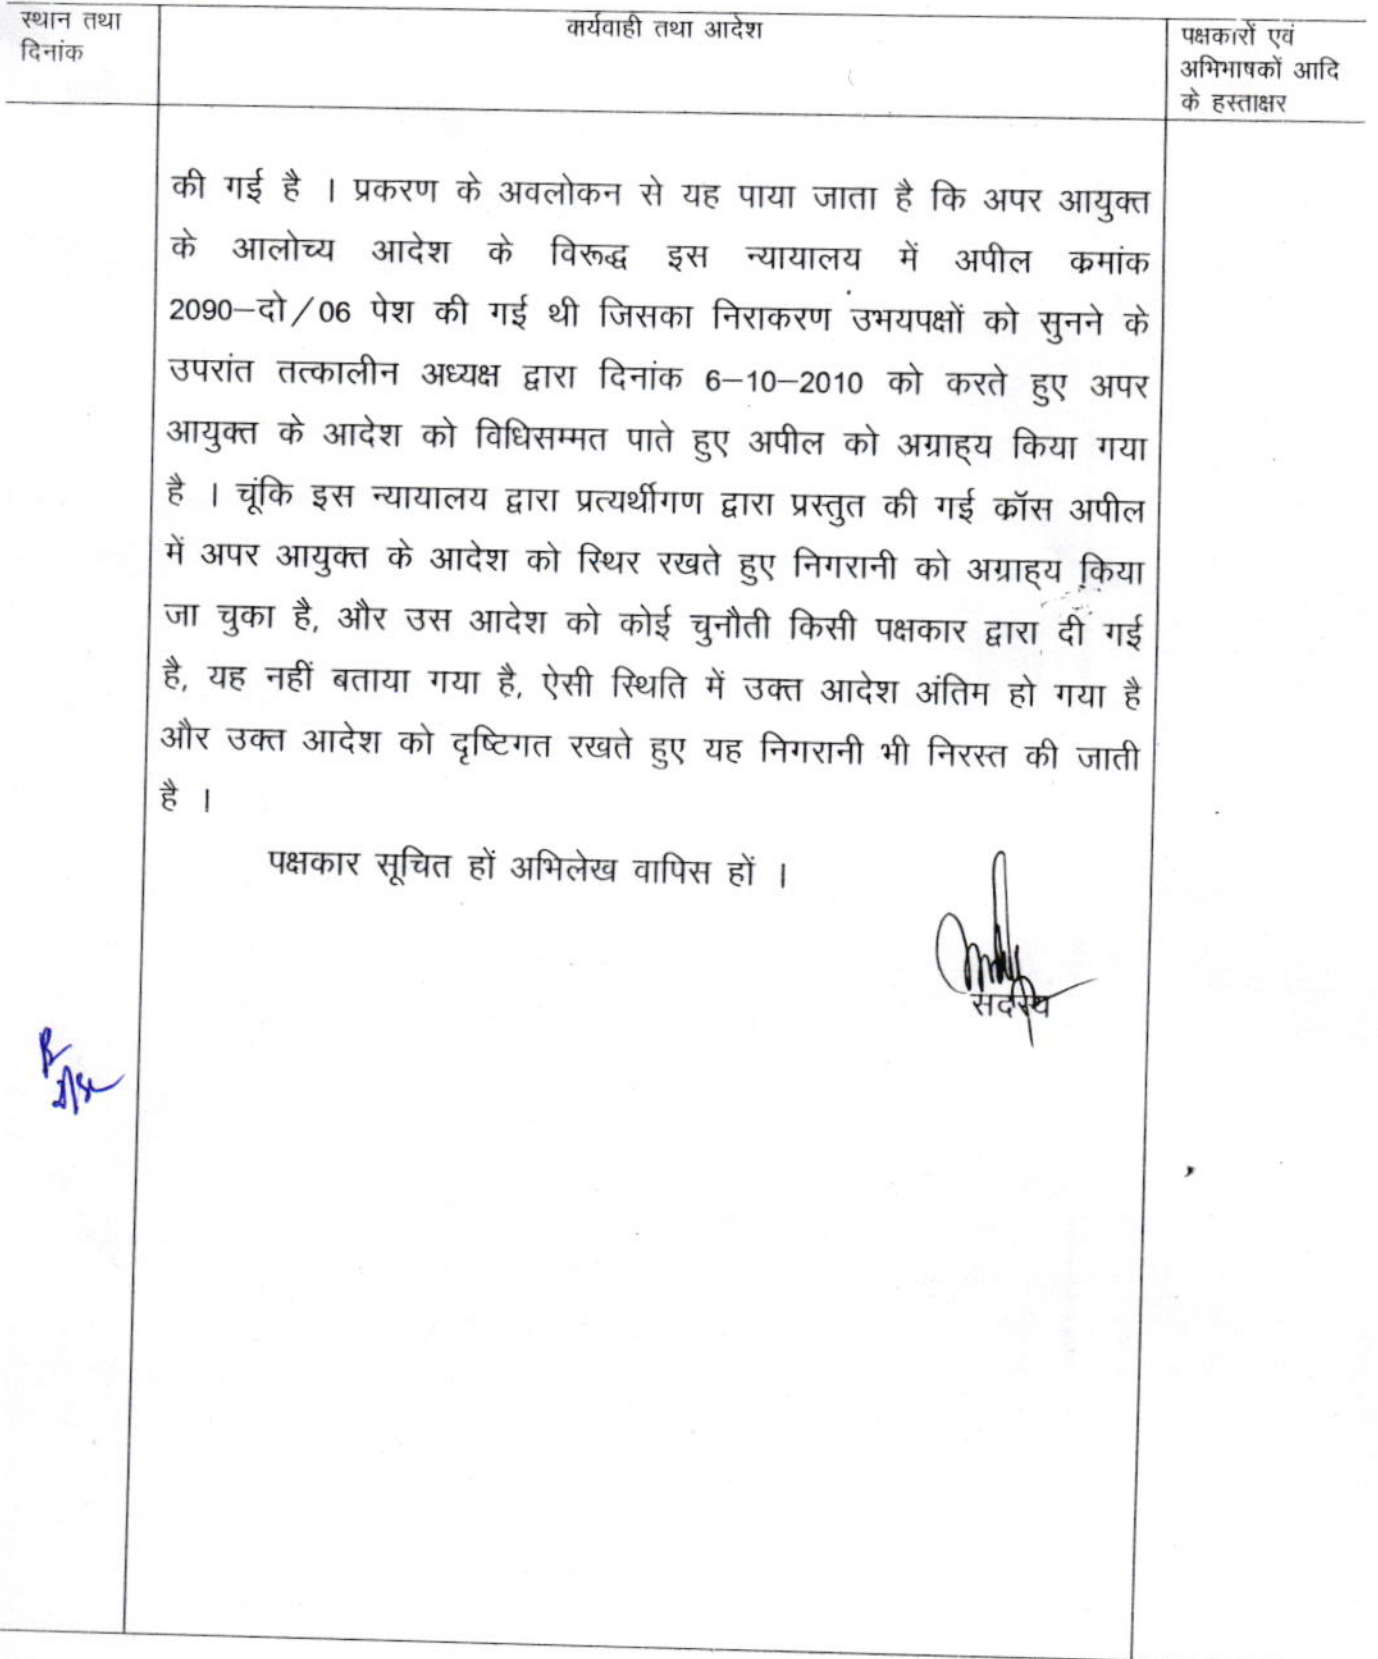 स्थान तथा
दिनांक
कार्यवाही तथा आदेश
पक्षकारों एवं
अभिभाषकों आदि
के हस्ताक्षर
की गई है । प्रकरण के अवलोकन से यह पाया जाता है कि अपर आयुक्त
के आलोच्य आदेश के विरूद्ध इस न्यायालय में अपील कमांक
2090–दो/06 पेश की गई थी जिसका निराकरण उभयपक्षों को सुनने के
उपरांत तत्कालीन अध्यक्ष द्वारा दिनांक 6–10–2010 को करते हुए अपर
आयुक्त के आदेश को विधिसम्मत पाते हुए अपील को अग्राह्य किया गया
है । चूंकि इस न्यायालय द्वारा प्रत्यर्थीगण द्वारा प्रस्तुत की गई कॉस अपील
में अपर आयुक्त के आदेश को स्थिर रखते हुए निगरानी को अग्राह्य किया
जा चुका है, और उस आदेश को कोई चुनौती किसी पक्षकार द्वारा दी गई
है, यह नहीं बताया गया है, ऐसी स्थिति में उक्त आदेश अंतिम हो गया है
और उक्त आदेश को दृष्टिगत रखते हुए यह निगरानी भी निरस्त की जाती
है ।
पक्षकार सूचित हों अभिलेख वापिस हों ।
सदस्य